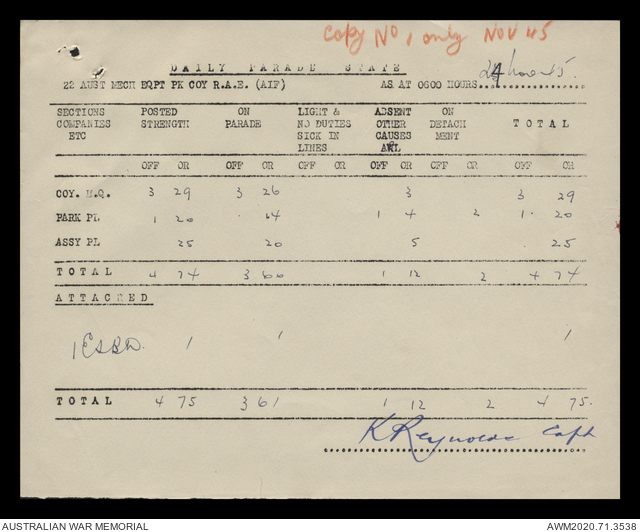 Copy No 1 only NOV 45
DAILY PARADE STATE
22 AUST MECH EQPT PK COY R.A.E. (AIF) AS AT 0600 HOURS 24 Nov 45.
SECTIONS POSTED ON LIGHT & ABSENT ON
COMPANIES STRENGTH PARADE NO DUTIES OTHER DETACH TOTAL
ETC SICK IN CAUSES MENT
LINES AWL
OFF OR OFF OR OFF OR OFF OR OR OFF OR
COY. H.Q. 3 29 3 26 3 3 29
PARK PL 1 20 14 1 4 2 1 20
ASSY PL 25 20 5 25
TOTAL 4 74 3 60 1 12 2 4 74
ATTACHED
1 1 1
TOTAL 4 75 3 61 1 12 2 4 75.
K Reynolds Capt
AUSTRALIAN WAR MEMORIAL AWM2020.71.3538